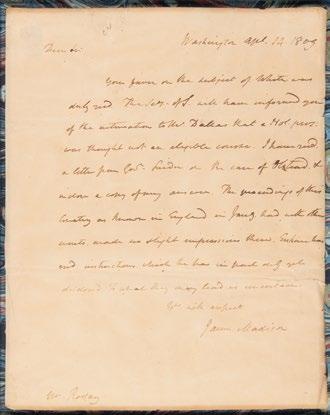 Washington Apl. 14 1809
Dear Sir
Your favor on the subject of White was
duly recd. The Secy. of S. will have informed you
of the intimation to Mr Dallas that a Nol. pros.
was thought not an eligible course. I have recd
a letter from Govr. Snider on the case of Olmstead &
inclose a copy of my answer. The proceedings of this
Country as known in England in Jany had with other
events made no slight impressions there. Erskine has
recd instructions which he has in part only yet
disclosed. To what they may lead is uncertain.
Yrs with respect
James Madison
Mr Rodney